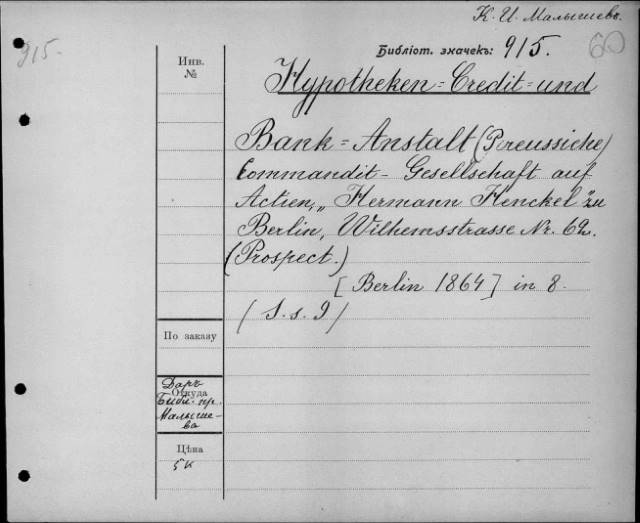 К. И. Малышево.
915.
Библіот. значекъ: 915.
60
Инв.
№
Hypotheken=Credit=und
Bank=Anstalt (Preussiche)
Commandit-Gesellschaft auf
Actien, „Hermann Henckel" zu
Berlin, Wilhemsstrasse Nr. 62.
(Prospect.)
[Berlin 1864] in 8.
(S. s. 9)
По заказу
Даръ
Откуда
Библ. пр.
Малыше-
ва
Цѣна
5 к